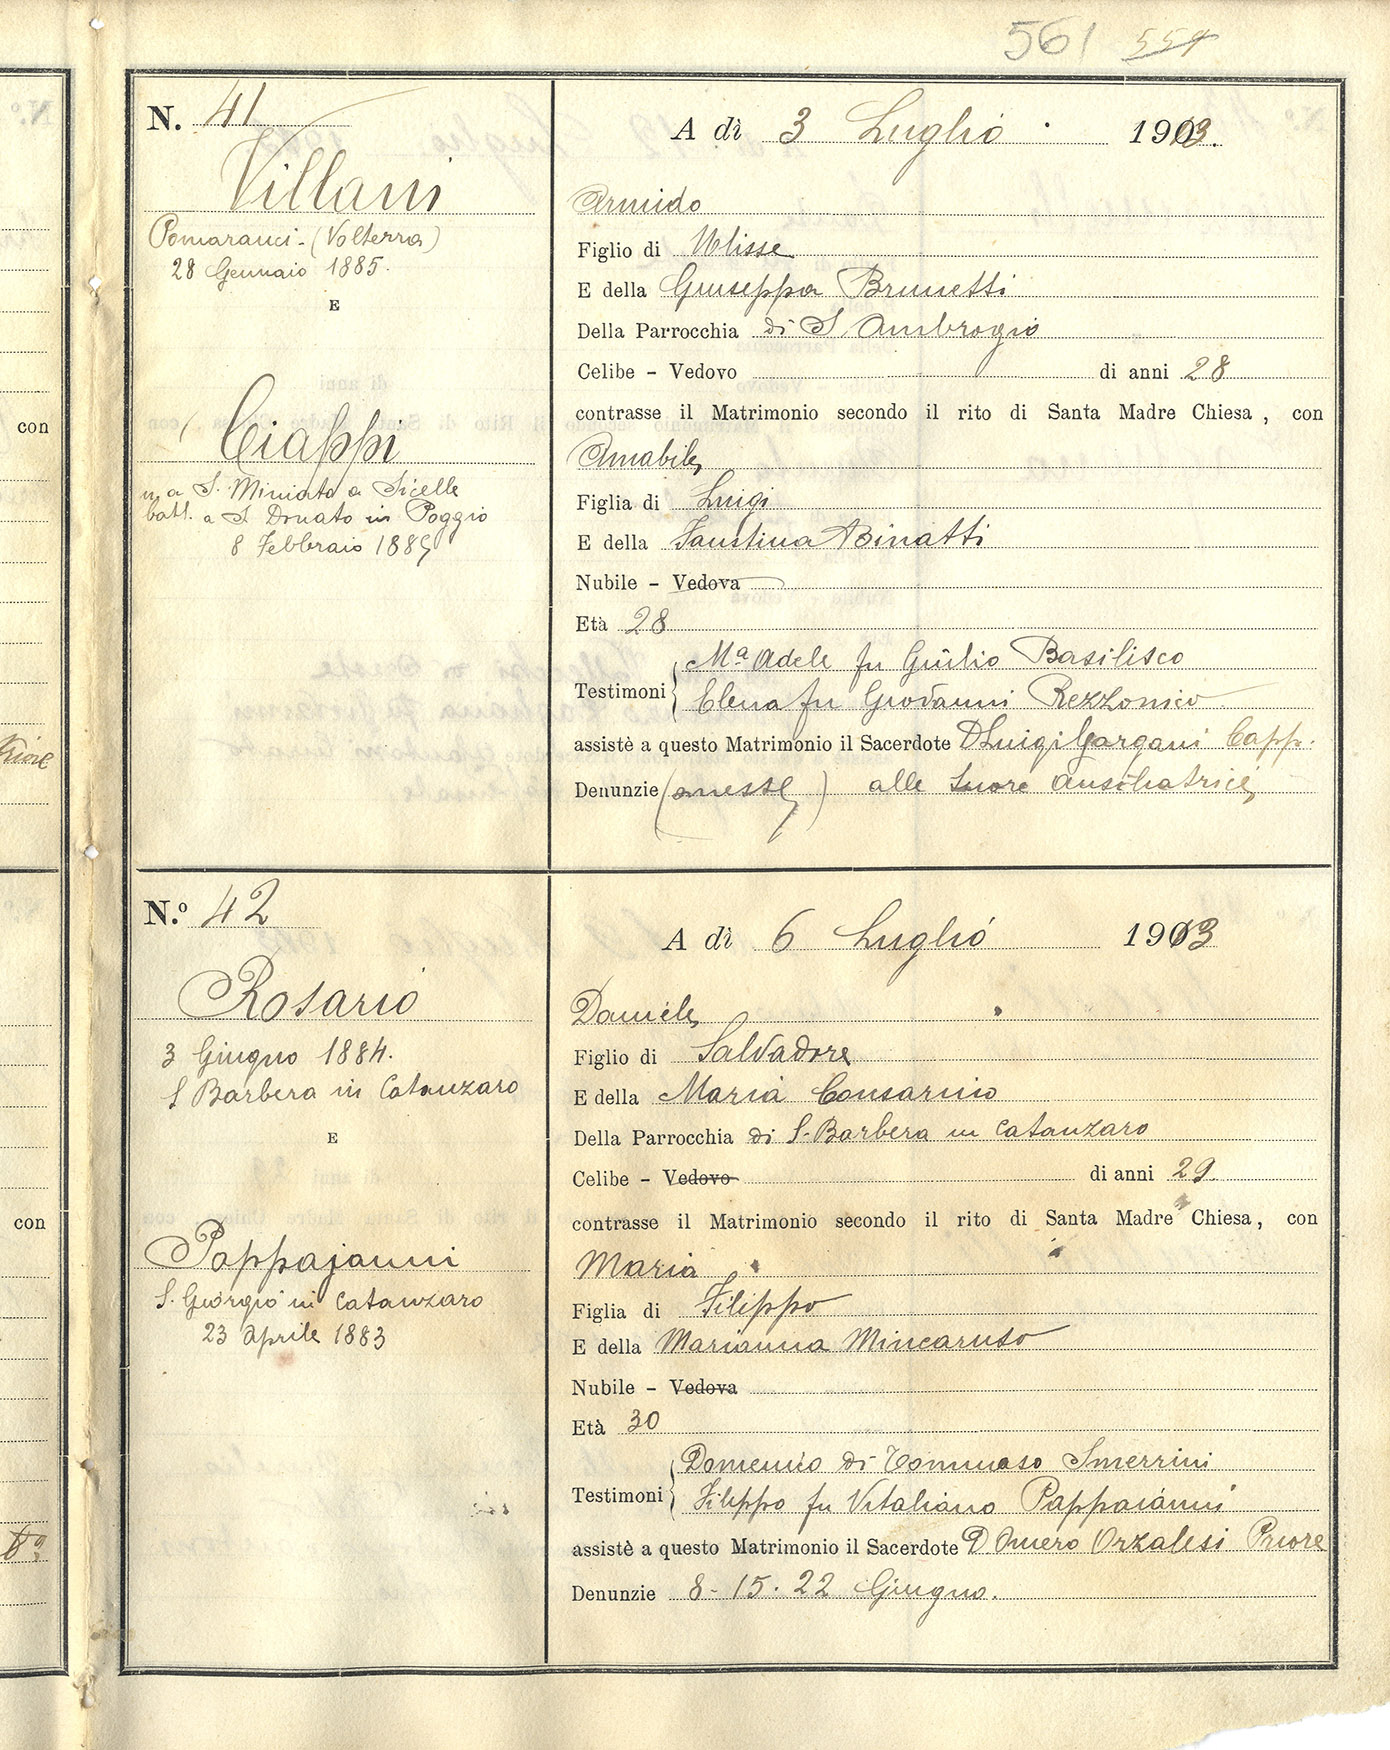 561 559
N. 41
Villani
Pomaranci - (Volterra)
28 Gennaio 1885.
E
Ciappi
n. a S. Miniato a Sicelle
batt. a S. Donato in Poggio
8 Febbraio 1885
A dì 3 Luglio 1913.
Armido
Figlio di Ulisse
E della Giuseppa Brunetti
Della Parrocchia di S. Ambrogio
Celibe - Vedovo di anni 28
contrasse il Matrimonio secondo il rito di Santa Madre Chiesa, con
Amabile
Figlia di Luigi
E della Faustina Binatti
Nubile - Vedova
Età 28
Mª Adele fu Giulio Basilisco
Testimoni
Elena fu Giovanni Rezzonico
assistè a questo Matrimonio il Sacerdote D Luigi Gargani Capp.
Denunzie (omesse) alle Suore
N.º 42
Rosario
3 Giugno 1884.
S Barbera in Catanzaro
E
Pappajanni
S. Giorgio in Catanzaro
23 Aprile 1883
A dì 6 Luglio 1913
Daniele
Figlio di Salvadore
E della Maria Consarnio
Della Parrocchia di S. Barbera in Catanzaro
Celibe - Vedovo di anni 29.
contrasse il Matrimonio secondo il rito di Santa Madre Chiesa, con
Maria
Figlia di Filippo
E della Marianna Mincaruso
Nubile - Vedova
Età 30
Domenico di Tommaso Smerrini
Testimoni
Filippo fu Vitaliano Pappaianni
assistè a questo Matrimonio il Sacerdote D. Omero Orzalesi Priore
Denunzie 8 - 15 . 22 Giugno.
con
Priore
con